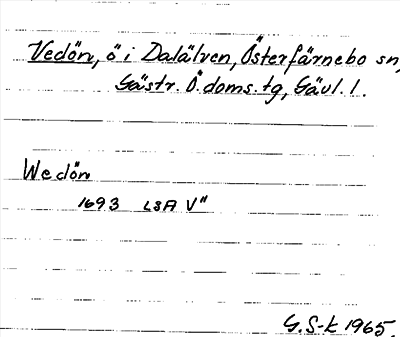 Vedön, ö i Dalälven, Österfärnebo sn,
Gästr. Ö. doms. tg, Gävl. l.
Wedön
1693 LSA V"
G. S-k 1965.